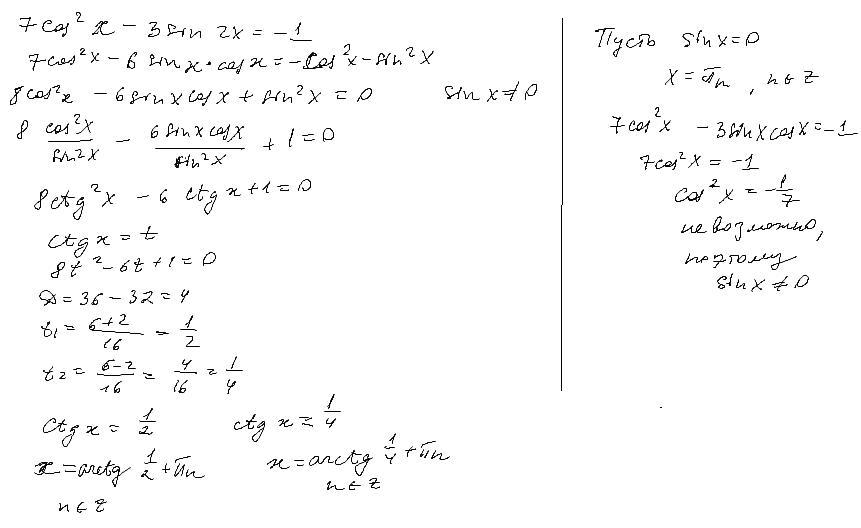 7cos²x − 3sin 2x = −1
7cos²x − 6 sin x · cos x = −cos²x − sin²x
8cos²x − 6sin x cos x + sin²x = 0 sin x ≠ 0
8 cos²x/sin²x − 6 sin x cos x/sin²x + 1 = 0
8ctg²x − 6 ctg x + 1 = 0
ctg x = t
8t² − 6t + 1 = 0
D = 36 − 32 = 4
t₁ = 6+2/16 = 1/2
t₂ = 6−2/16 = 4/16 = 1/4
ctg x = 1/2 ctg x = 1/4
x = arctg 1/2 + πn x = arctg 1/4 + πn
n ∈ z n ∈ z
Пусть sin x = 0
x = πn, n ∈ z
7cos²x − 3sin x cos x = −1
7cos²x = −1
cos²x = −1/7
невозможно,
поэтому
sin x ≠ 0